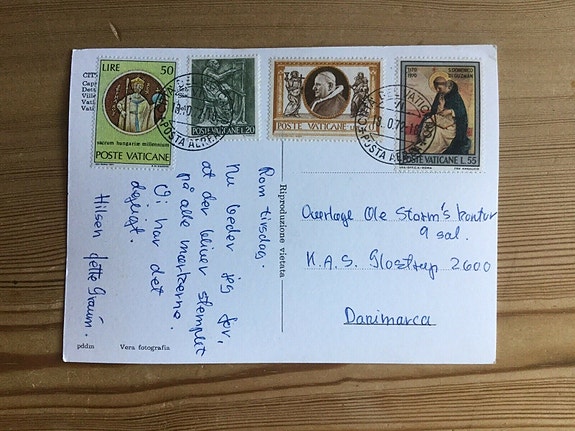 LIRE 50
sacrum hungariae millennium
POSTE VATICANE
POSTE VATICANE L.20
POSTE VATICANE
1170 1970
S.DOMENICO
DI GUZMAN
POSTE VATICANE L.55
POSTA AEREA
Rom tirsdag.
Nu beder jeg for,
at der bliver stemplet
på alle mærkerne.
Vi har det
dejligt.
Hilsen Jette Graum.
Riproduzione vietata
Overlæge Ole Storm's kontor
9 sal.
K.A.S. Glostrup 2600
Danimarca
pddm Vera fotografia